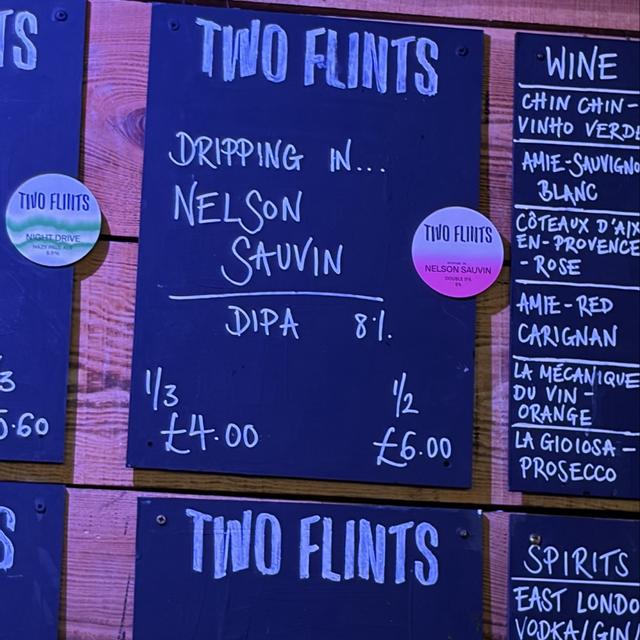 TWO FLINTS
DRIPPING IN...
NELSON
SAUVIN
DIPA 8%.
1/3
£4.00
1/2
£6.00
TWO FLINTS
NELSON SAUVIN
DOUBLE IPA
8%
TWO FLINTS
NIGHT DRIVE
HAZE PALE ALE
TS
/3
5.60
WINE
CHIN CHIN-
VINHO VERD
AMIE-SAUVIGNO
BLANC
CÔTEAUX D'AIX
EN-PROVENCE
- ROSE
AMIE-RED
CARIGNAN
LA MÉCANIQUE
DU VIN -
ORANGE
LA GIOIOSA -
PROSECCO
S
TWO FLINTS
SPIRITS
EAST LONDO
VODKA/GIN/